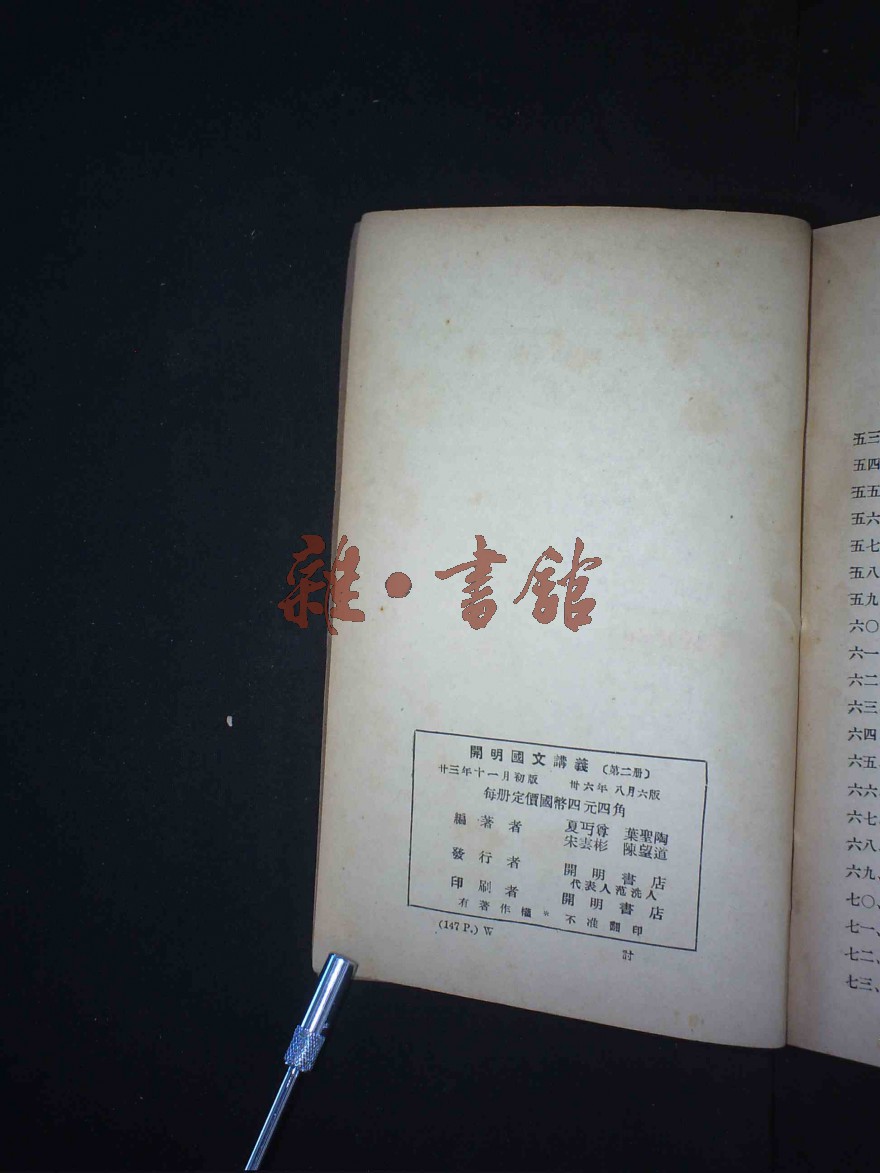 雜·書館
開明國文講義(第二册)
廿三年十一月初版 卅六年八月六版
每册定價國幣四元四角
編著者 夏丏尊 葉聖陶
宋雲彬 陳望道
發行者 開明書店
代表人范洗人
印刷者 開明書店
有著作權*不准翻印
(147 P.) W
討
五三
五四
五五
五六
五七
五八
五九
六〇
六一
六二
六三
六四
六五、
六六、
六七、
六八、
六九、
七〇、
七一、
七二、
七三、